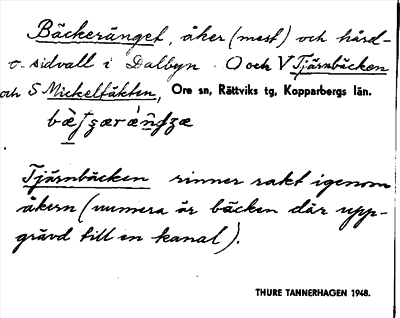 Bäckeränget, åker (mest) och hård-
o. sidvall i Dalbyn. O och V Tjärnbäcken
och S Mickeltäkten, Ore sn, Rättviks tg, Kopparbergs län.
Tjärnbäcken rinner rakt igenom
åkern (numera är bäcken där upp-
grävd till en kanal).
THURE TANNERHAGEN 1948.